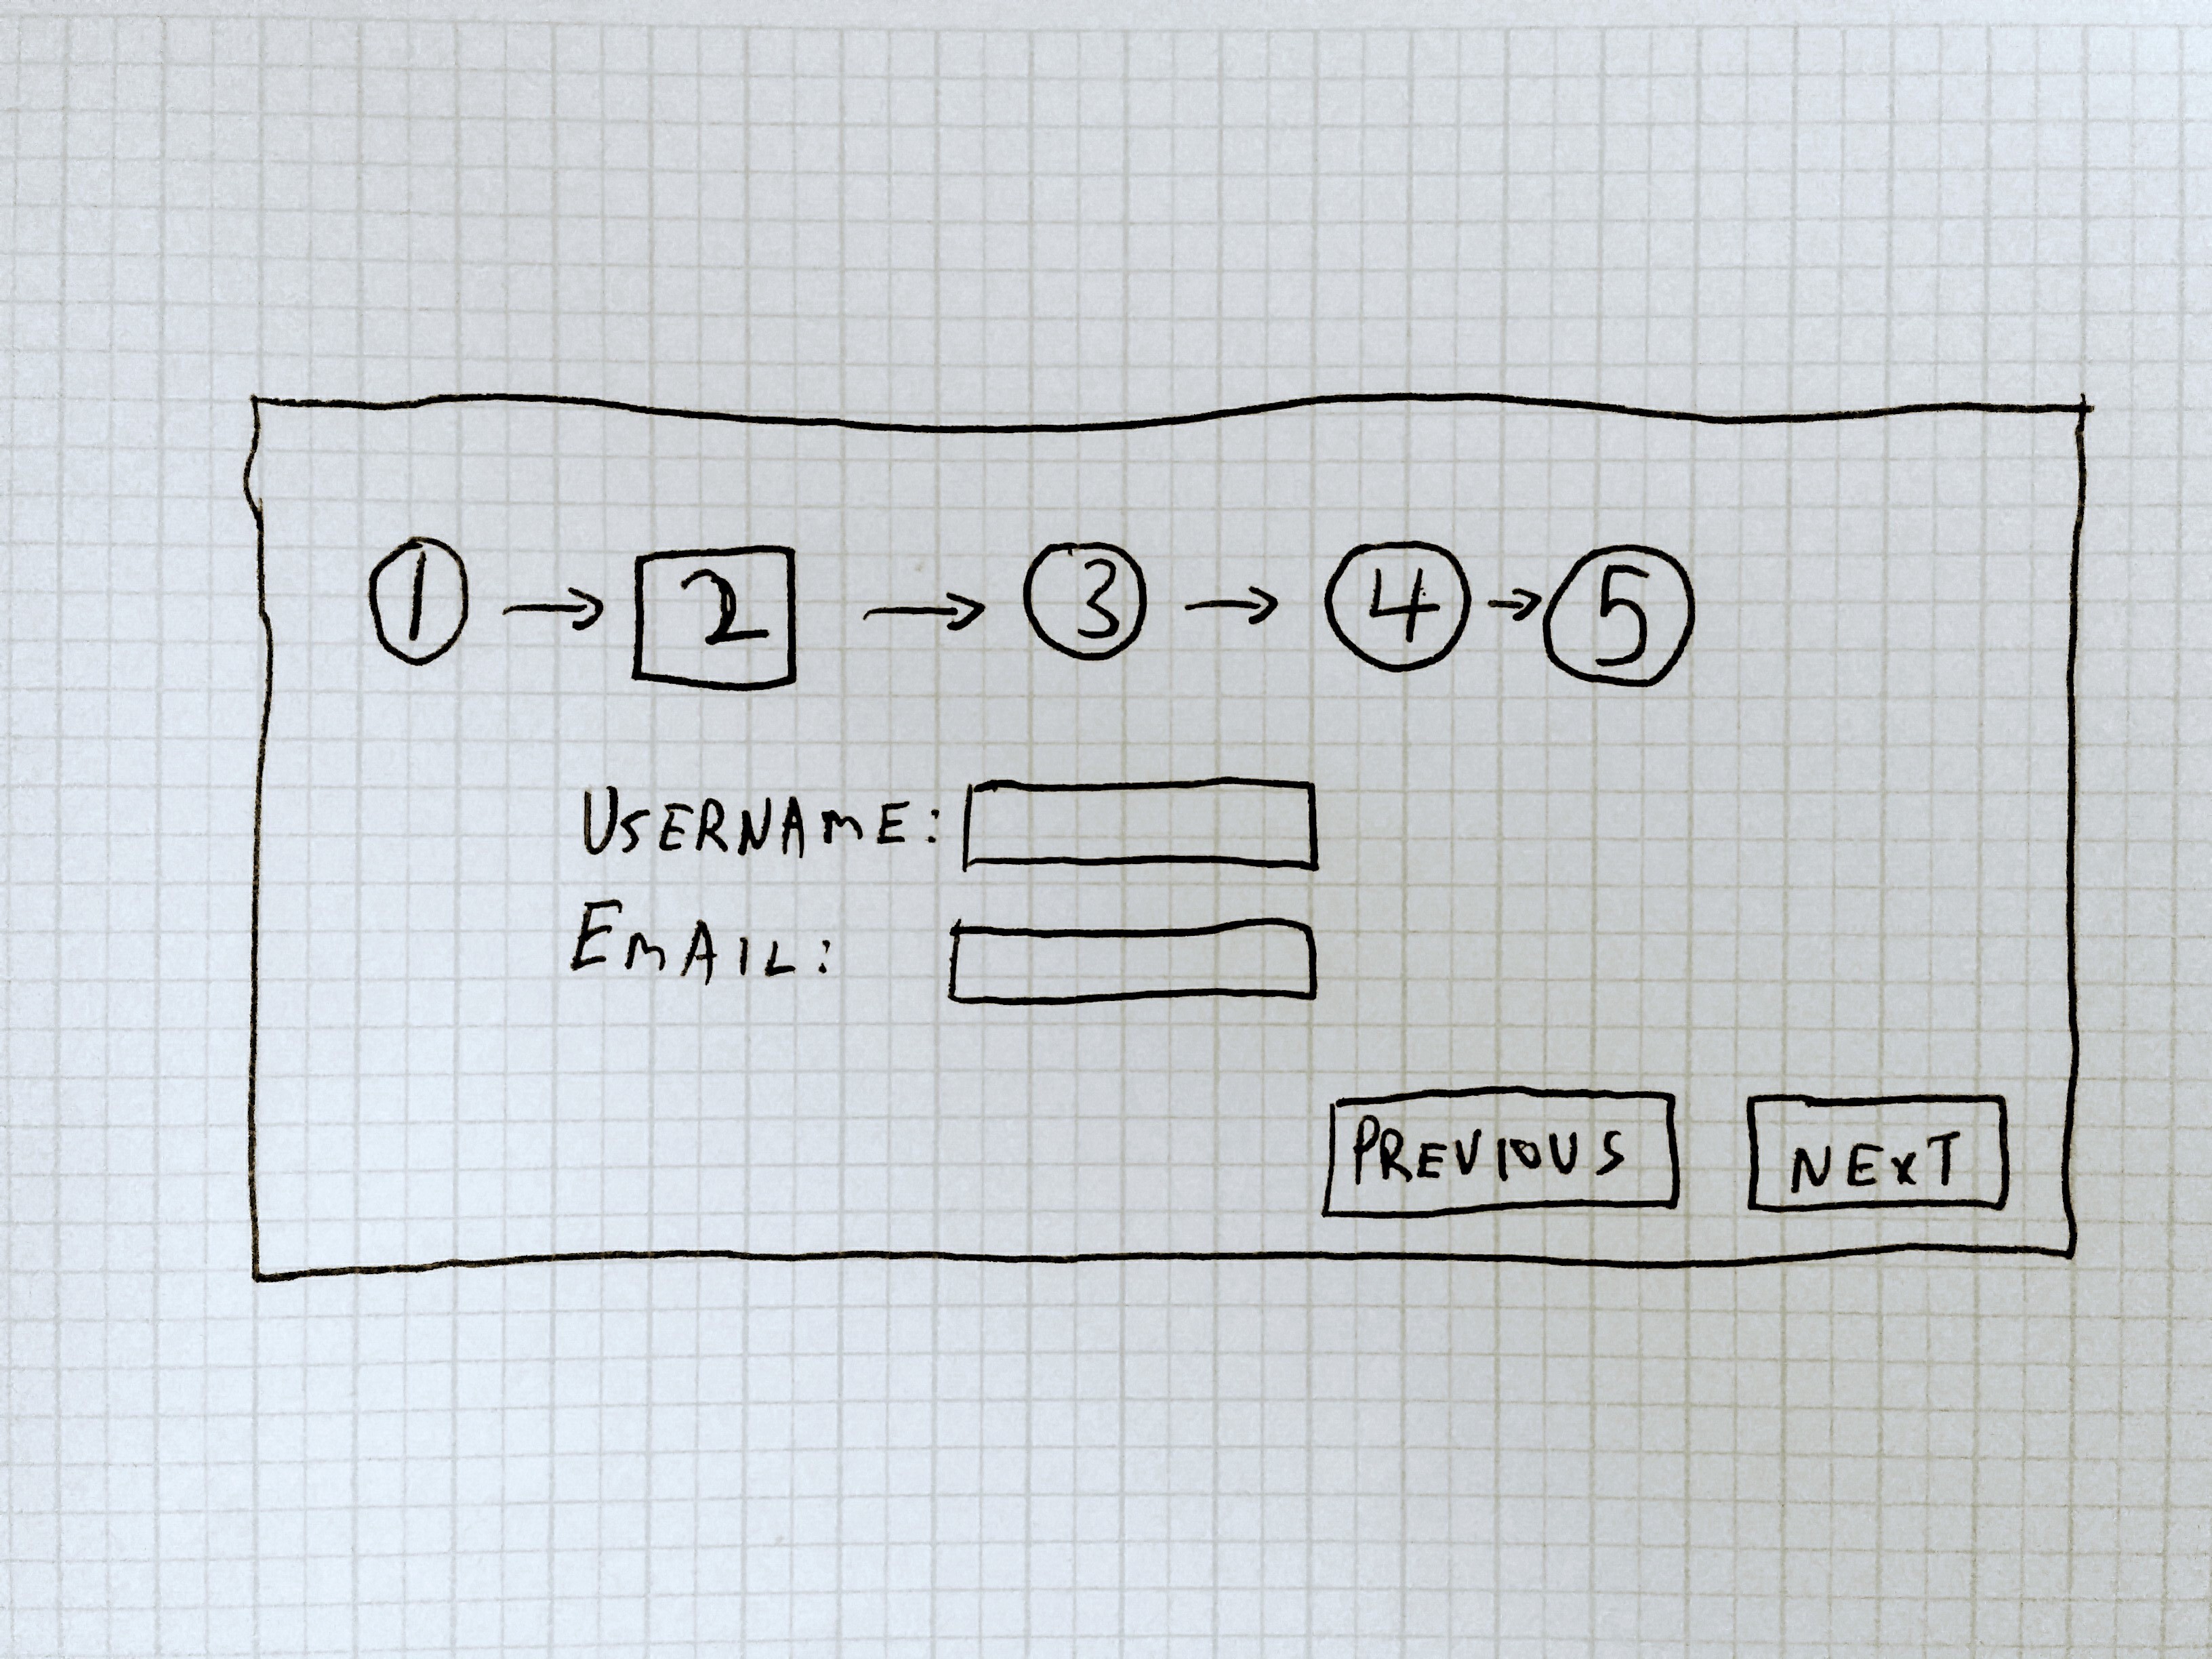 1 → 2 → 3 → 4 → 5
USERNAME:
EMAIL:
PREVIOUS NEXT